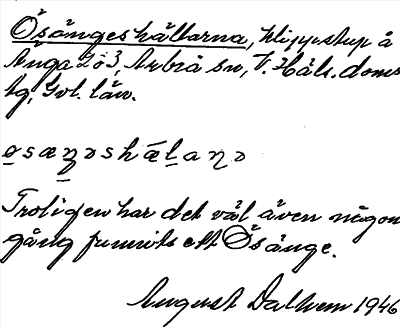 Ösängeshällarna, klippstup å
Änga 2 o 3, Arbrå sn, V. Häls. doms
tg, Gvl. län.
o̲sæn̲əshæl̲aɳə
Troligen har det väl även någon
gång funnits ett Ösänge.
August Dalhem 1946